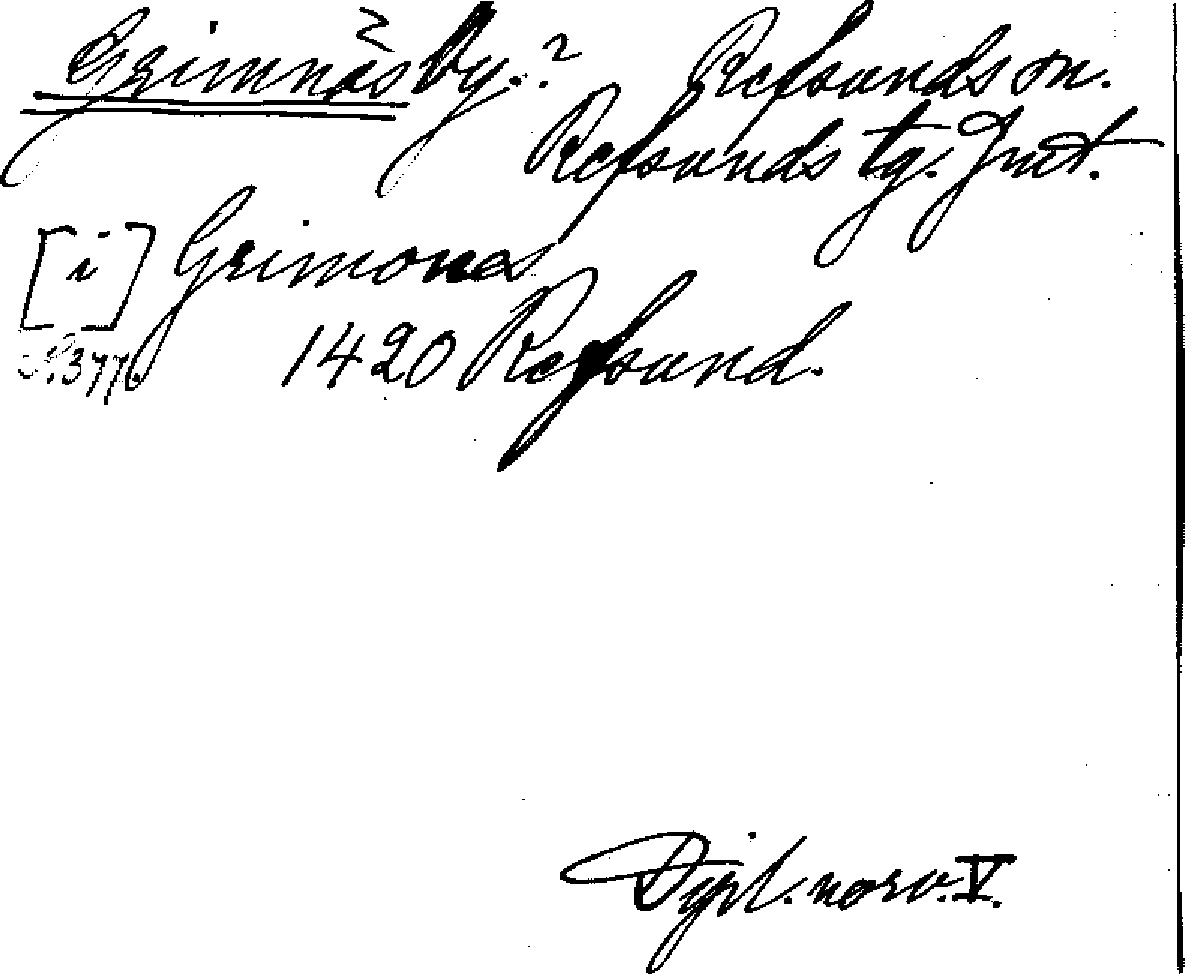 Grimnäs by.? Refsunds sn.
Refsunds tg. Jmt.
[i] Grimonas
S. 377. 1420 Refsund.
Dipl. norv. V.